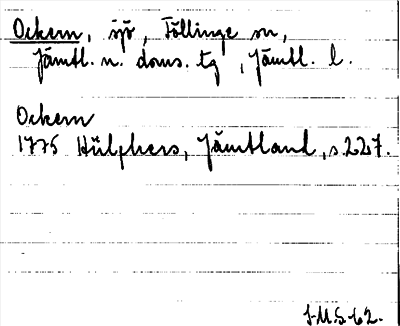 Ockern, sjö, Föllinge sn,
Jämtl. n. doms. tg, Jämtl. l.
Ockern
1775 Hülphers, Jämtland, s. 227.
J.M.S-62.